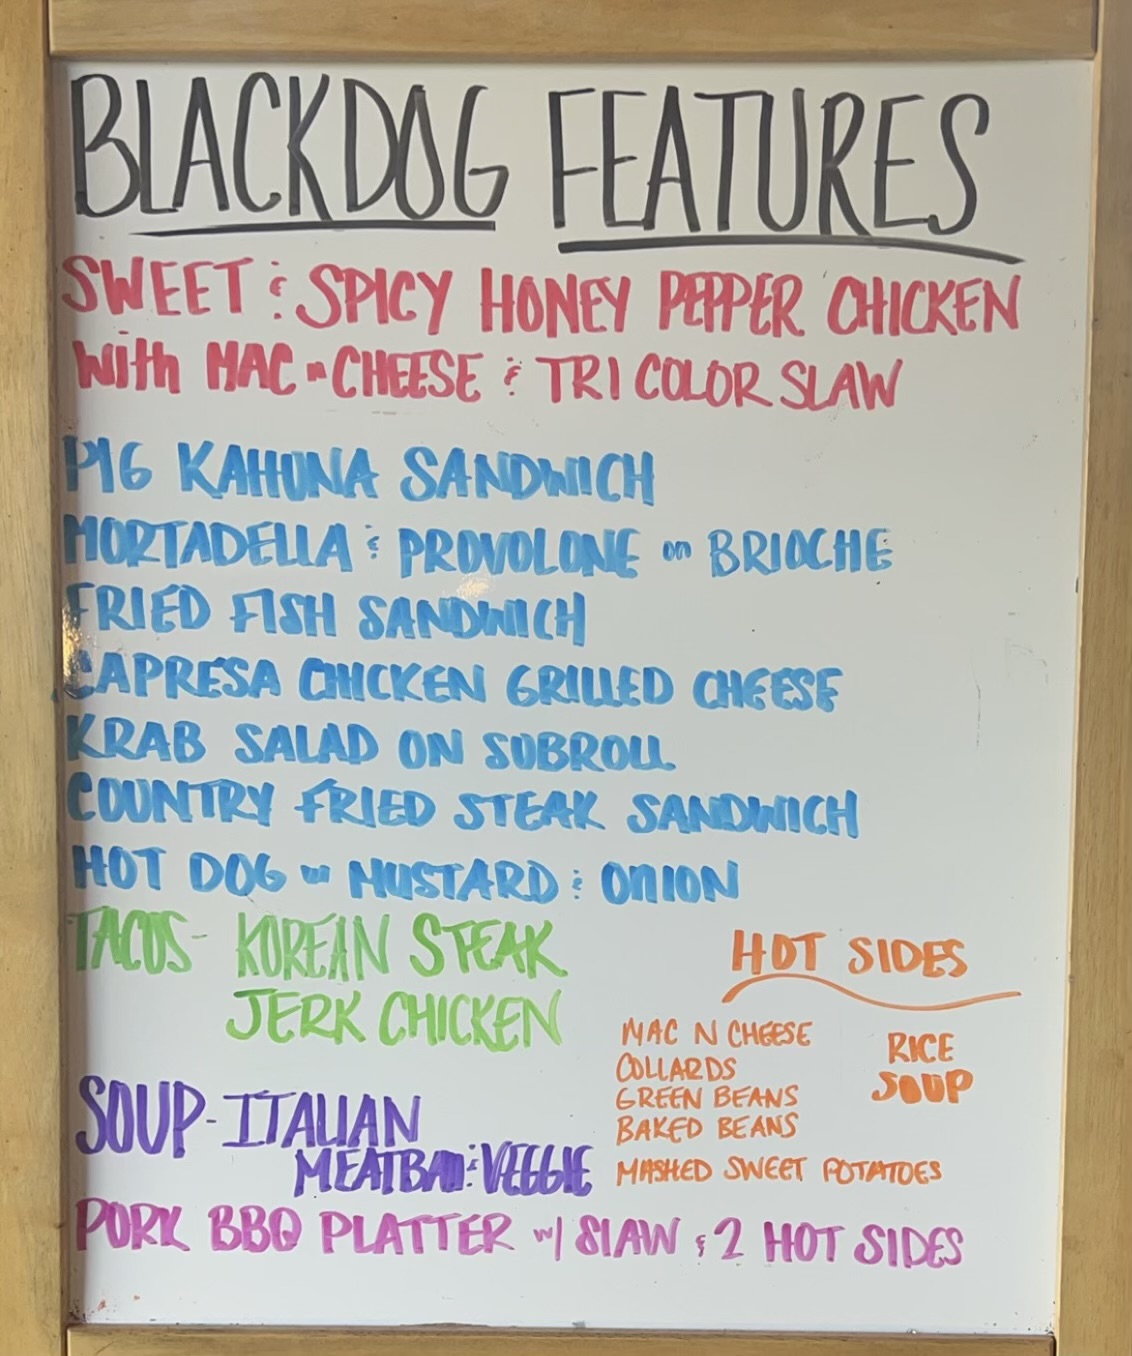 BLACKDOG FEATURES
SWEET & SPICY HONEY PEPPER CHICKEN
with MAC n CHEESE & TRI COLOR SLAW
PIG KAHUNA SANDWICH
MORTADELLA & PROVOLONE on BRIOCHE
FRIED FISH SANDWICH
CAPRESA CHICKEN GRILLED CHEESE
KRAB SALAD ON SUBROLL
COUNTRY FRIED STEAK SANDWICH
HOT DOG w MUSTARD & ONION
TACOS- KOREAN STEAK
JERK CHICKEN
SOUP-ITALIAN
MEATBALL & VEGGIE
HOT SIDES
MAC N CHEESE
COLLARDS
GREEN BEANS
BAKED BEANS
MASHED SWEET POTATOES
RICE
SOUP
PORK BBQ PLATTER w/ SLAW & 2 HOT SIDES